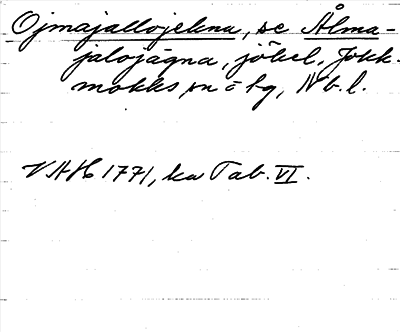 Ojmajallojekna, se Ålma-
jalojägna, jökel, Jokk-
mokks sn = hg, Nb. l.
VAH 1771, ka Tab. VI.